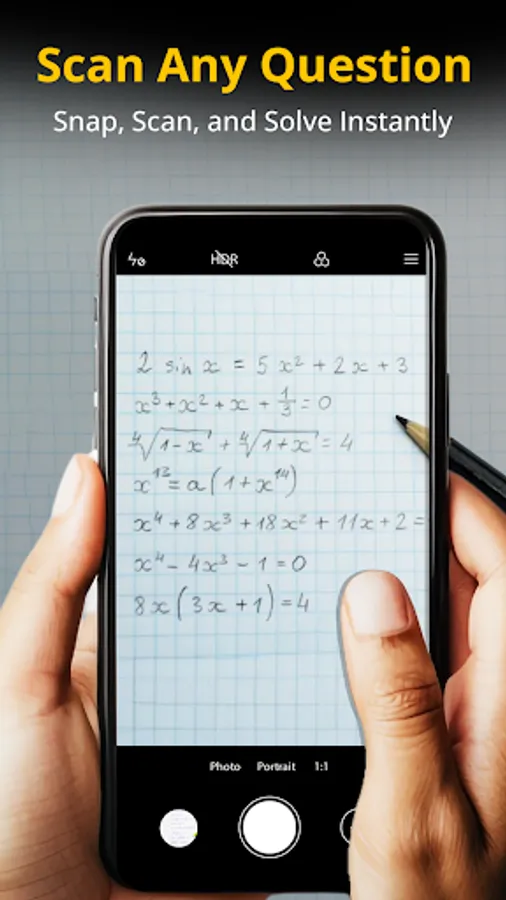 Scan Any Question
Snap, Scan, and Solve Instantly
HDR
2 sin x = 5x² + 2x + 3
x³ + x² + x + 1/3 = 0
∜(1-x) + ∜(1+x) = 4
x¹³ = a(1 + x¹⁴)
x⁴ + 8x³ + 18x² + 11x + 2 =
x⁴ - 4x³ - 1 = 0
8x(3x + 1) = 4
Photo Portrait 1:1